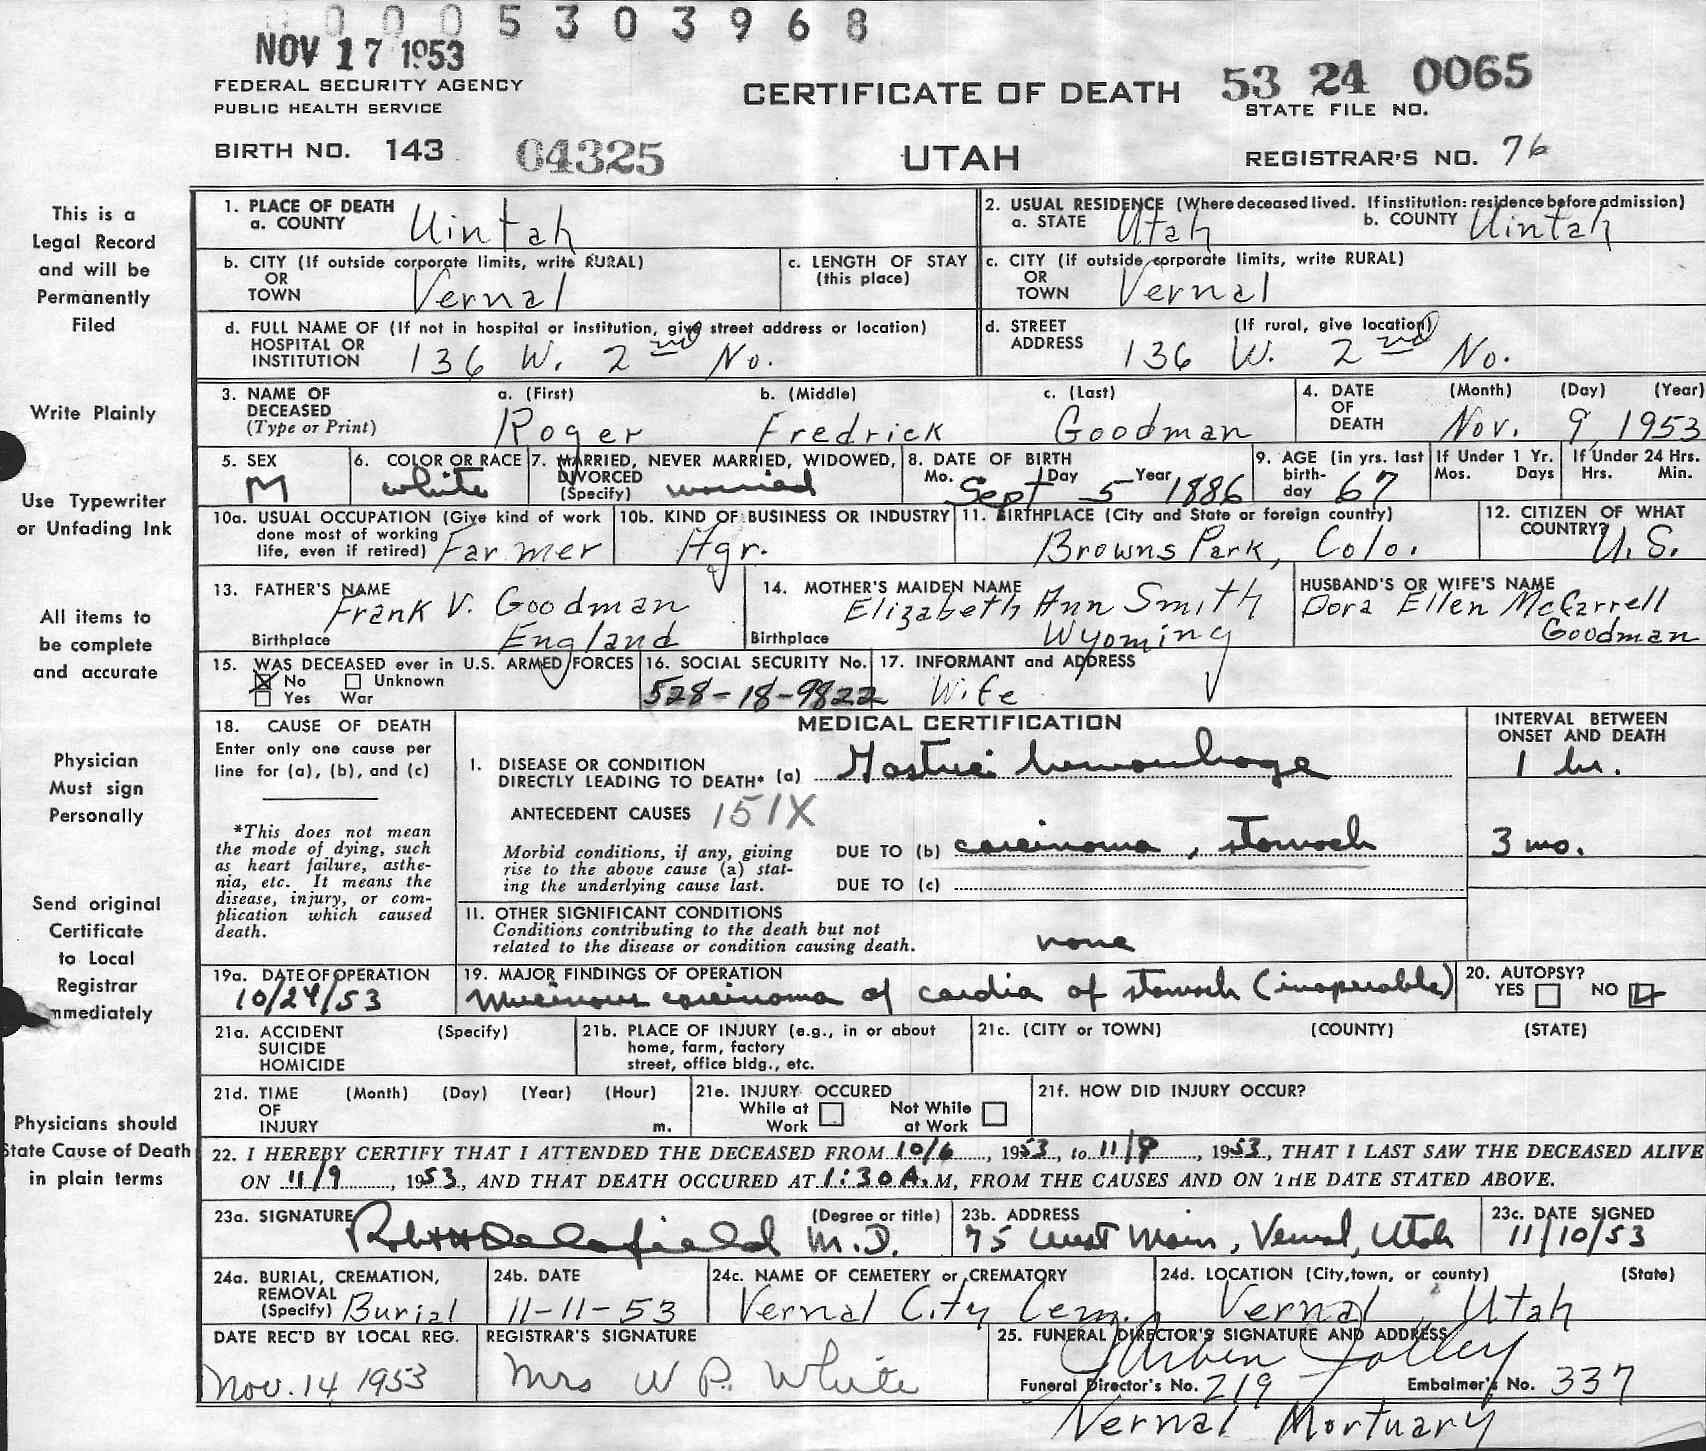 0005303968
NOV 17 1953
FEDERAL SECURITY AGENCY
PUBLIC HEALTH SERVICE
CERTIFICATE OF DEATH
53 24 0065
STATE FILE NO.
BIRTH NO. 143 04325
UTAH
REGISTRAR'S NO. 76
This is a
Legal Record
and will be
Permanently
Filed
Write Plainly
Use Typewriter
or Unfading Ink
All items to
be complete
and accurate
Physician
Must sign
Personally
Send original
Certificate
to Local
Registrar
mmediately
Physicians should
State Cause of Death
in plain terms
1. PLACE OF DEATH
a. COUNTY Uintah
2. USUAL RESIDENCE (Where deceased lived. If institution: residence before admission)
a. STATE Utah b. COUNTY Uintah
b. CITY (If outside corporate limits, write RURAL)
OR
TOWN Vernal
c. LENGTH OF STAY
(this place)
c. CITY (if outside corporate limits, write RURAL)
OR
TOWN Vernal
d. FULL NAME OF (If not in hospital or institution, give street address or location)
HOSPITAL OR
INSTITUTION 136 W. 2nd No.
d. STREET (If rural, give location)
ADDRESS 136 W. 2nd No.
3. NAME OF a. (First) b. (Middle) c. (Last)
DECEASED
(Type or Print) Roger Fredrick Goodman
4. DATE (Month) (Day) (Year)
OF
DEATH Nov. 9, 1953
5. SEX
M
6. COLOR OR RACE
white
7. MARRIED, NEVER MARRIED, WIDOWED,
DIVORCED
(Specify) married
8. DATE OF BIRTH
Mo. Sept Day 5 Year 1886
9. AGE (in yrs. last
birth-
day 67
If Under 1 Yr.
Mos. Days
If Under 24 Hrs.
Hrs. Min.
10a. USUAL OCCUPATION (Give kind of work
done most of working
life, even if retired) Farmer
10b. KIND OF BUSINESS OR INDUSTRY
Agr.
11. BIRTHPLACE (City and State or foreign country)
Browns Park, Colo.
12. CITIZEN OF WHAT
COUNTRY? U.S.
13. FATHER'S NAME
Frank V. Goodman
Birthplace England
14. MOTHER'S MAIDEN NAME
Elizabeth Ann Smith
Birthplace Wyoming
HUSBAND'S OR WIFE'S NAME
Dora Ellen McCarrell
Goodman
15. WAS DECEASED ever in U.S. ARMED FORCES
No Unknown
Yes War
16. SOCIAL SECURITY No.
528-18-9822
17. INFORMANT and ADDRESS
Wife
18. CAUSE OF DEATH
Enter only one cause per
line for (a), (b), and (c)
*This does not mean
the mode of dying, such
as heart failure, asthe-
nia, etc. It means the
disease, injury, or com-
plication which caused
death.
MEDICAL CERTIFICATION
INTERVAL BETWEEN
ONSET AND DEATH
1. DISEASE OR CONDITION
DIRECTLY LEADING TO DEATH* (a) Gastric hemorrhage 1 hr.
ANTECEDENT CAUSES 151X
Morbid conditions, if any, giving
rise to the above cause (a) stat-
ing the underlying cause last.
DUE TO (b) carcinoma, stomach 3 mo.
DUE TO (c)
11. OTHER SIGNIFICANT CONDITIONS
Conditions contributing to the death but not
related to the disease or condition causing death. none
19a. DATE OF OPERATION
10/24/53
19. MAJOR FINDINGS OF OPERATION
Mucinous carcinoma of cardia of stomach (inoperable)
20. AUTOPSY?
YES NO
21a. ACCIDENT (Specify)
SUICIDE
HOMICIDE
21b. PLACE OF INJURY (e.g., in or about
home, farm, factory
street, office bldg., etc.
21c. (CITY or TOWN) (COUNTY) (STATE)
21d. TIME (Month) (Day) (Year) (Hour)
OF
INJURY m.
21e. INJURY OCCURED
While at Not While
Work at Work
21f. HOW DID INJURY OCCUR?
22. I HEREBY CERTIFY THAT I ATTENDED THE DECEASED FROM 10/6, 1953, to 11/9, 1953, THAT I LAST SAW THE DECEASED ALIVE
ON 11/9, 1953, AND THAT DEATH OCCURED AT 1:30 A.M, FROM THE CAUSES AND ON THE DATE STATED ABOVE.
23a. SIGNATURE (Degree or title)
Robt H Delafield M.D.
23b. ADDRESS
75 West Main, Vernal, Utah
23c. DATE SIGNED
11/10/53
24a. BURIAL, CREMATION,
REMOVAL
(Specify) Burial
24b. DATE
11-11-53
24c. NAME OF CEMETERY or CREMATORY
Vernal City Cem.
24d. LOCATION (City, town, or county) (State)
Vernal, Utah
DATE REC'D BY LOCAL REG.
Nov. 14 1953
REGISTRAR'S SIGNATURE
Mrs W P. White
25. FUNERAL DIRECTOR'S SIGNATURE AND ADDRESS
Funeral Director's No. 219 Embalmer's No. 337
Vernal Mortuary